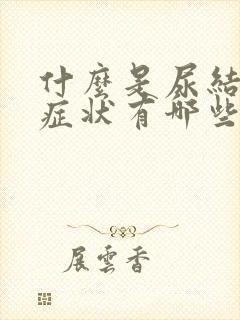 什麼是尿結
症状有哪些
展雲香